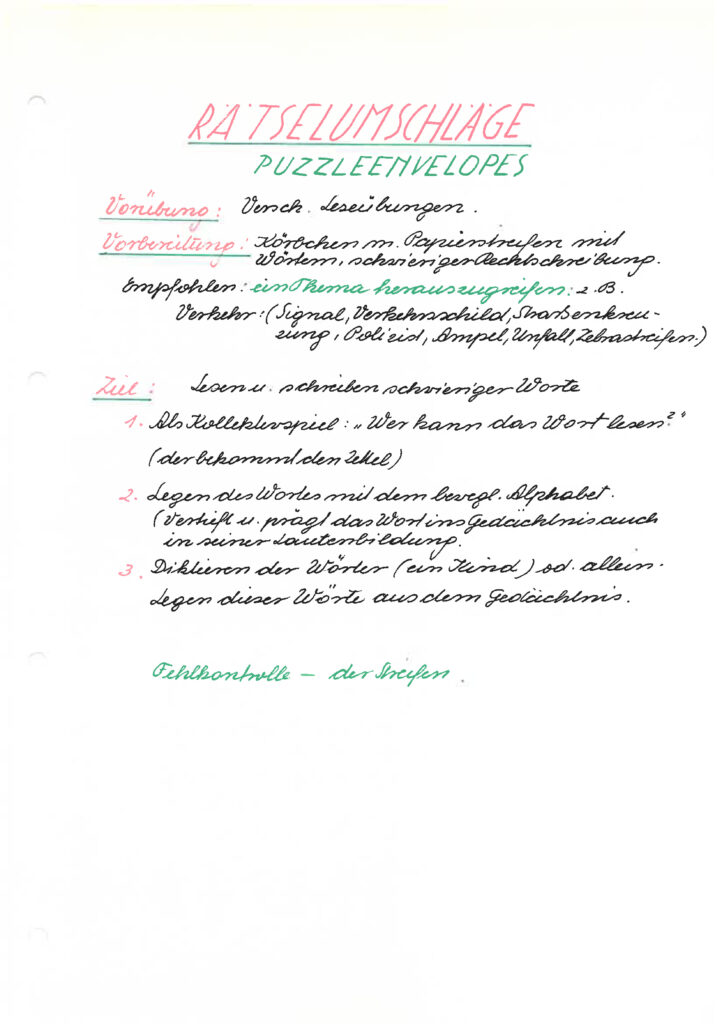 RÄTSELUMSCHLÄGE
PUZZLEENVELOPES
Vorübung: Versch. Leseübungen.
Vorbereitung: Körbchen m. Papierstreifen mit
Wörtern, schwieriger Rechtschreibung.
Empfohlen: ein Thema herauszugreifen: z.B.
Verkehr: (Signal, Verkehrsschild, Straßenkreu-
zung, Polizist, Ampel, Unfall, Zebrastreifen.)
Ziel: Lesen u. schreiben schwieriger Worte
1. Als Kollektivspiel: „Wer kann das Wort lesen?"
(der bekommt den Zettel)
2. Legen des Wortes mit dem bewegl. Alphabet.
(Vertieft u. prägt das Wort ins Gedächtnis auch
in seiner Lautenbildung.
3. Diktieren der Wörter (ein Kind) od. allein.
Legen dieser Wörte aus dem Gedächtnis.
Fehlkontrolle – der Streifen.